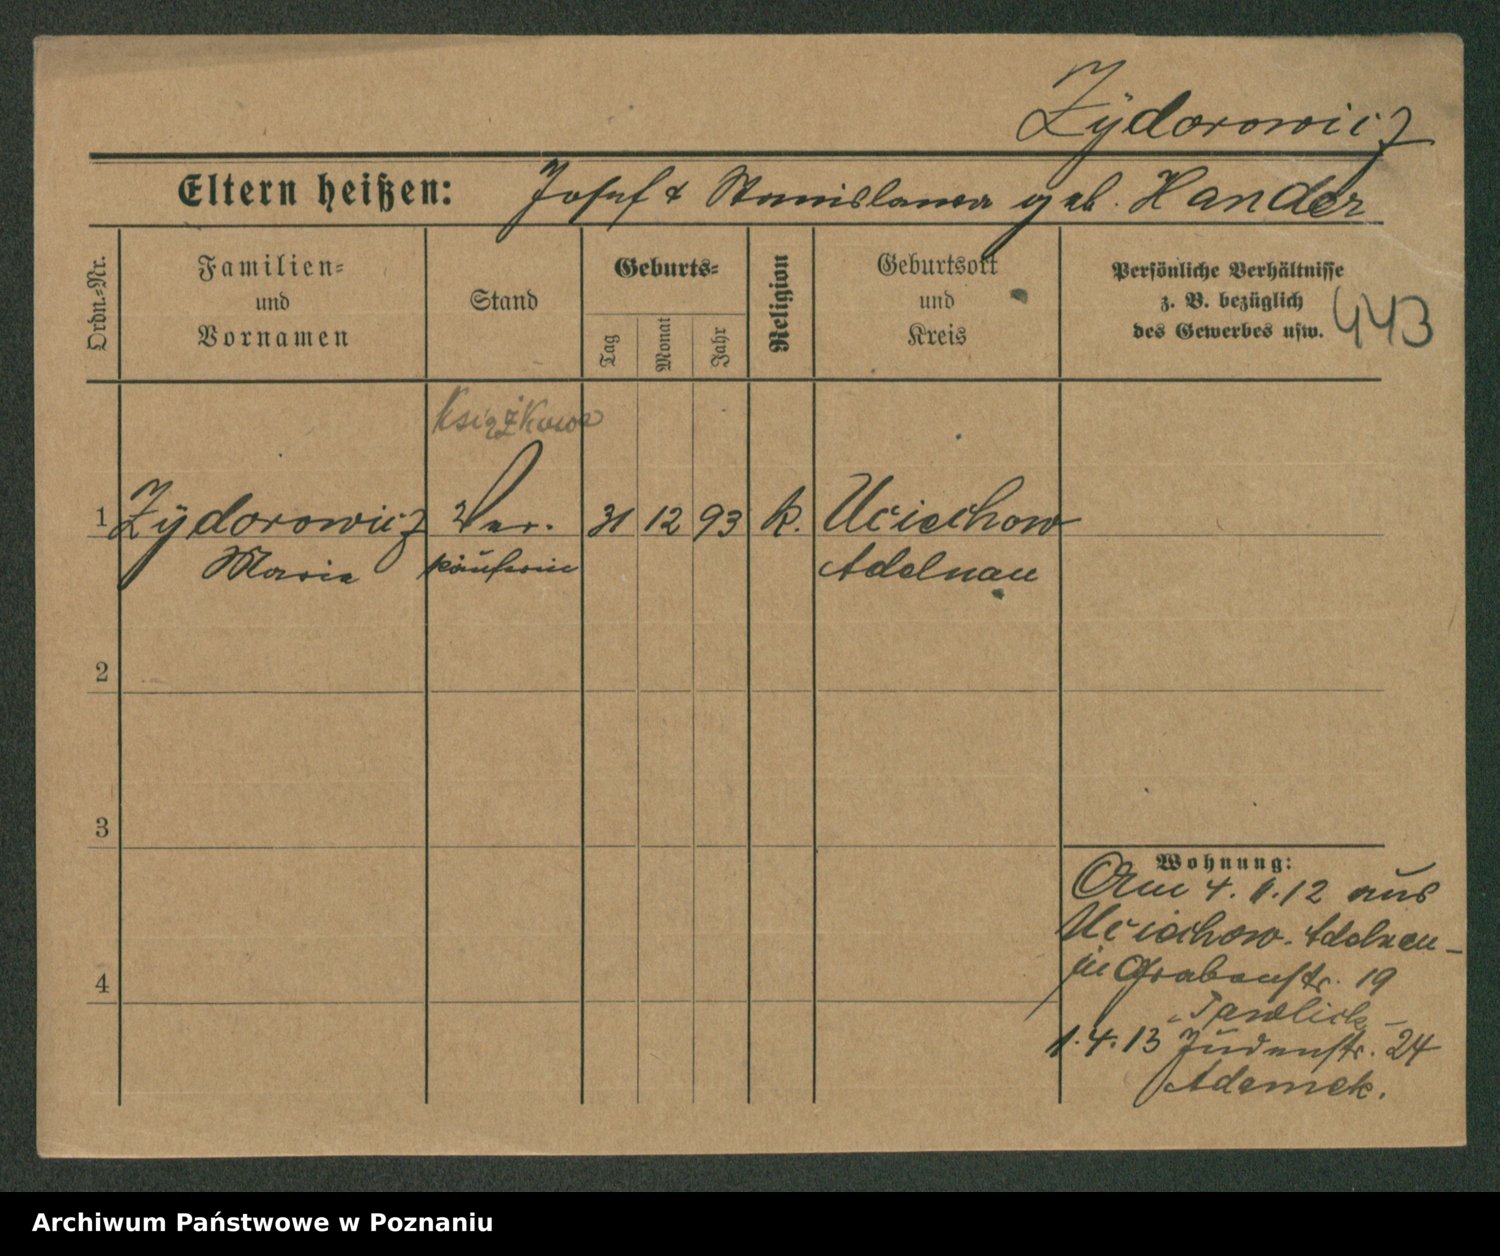 Zÿdorowicz
Eltern heißen: Josef & Stanislawa geb. Hander
Ordn.-Nr.
Familien-
und
Vornamen
Stand
Geburts-
Tag
Monat
Jahr
Religion
Geburtsort
und
Kreis
Persönliche Verhältnisse
z. B. bezüglich
des Gewerbes usw.
443
Książkowa
1 Zÿdorowicz Ver- 31 12 93 k. Uciechow
Maria käuferin Adelnau
2
3
4
Wohnung:
Am 4. 1. 12 aus
Uciechow. Adelnau -
in Grabenstr. 19
1.4.13 Judenstr. 24
Adamek.
Archiwum Państwowe w Poznaniu